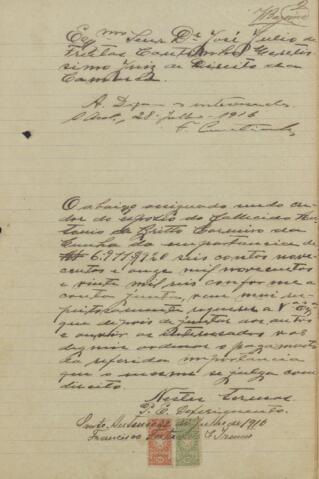 Exmo Senr Dr José Julio de
Freitas Coutinho Meretis-
simo Juiz de Direito da
Comarca
A. Digam os interessados
28 - julho - 1916
F. Coutinho
O abaixo assignado sendo cre-
dor do espolio do fallecido An-
tonio de Britto Carneiro da
Cunha da importancia de
6:911$920 seis contos nove-
centos e onze mil novecentos
e vinte mil reis conforme a
conta junta, vem mui res-
peitosamente requerer a V. Ex
que depois de juntos aos autos
e ouvir os interessados se
digne ordenar o pagamento
da referida importancia
que o mesmo se julga com
direito.
Nestes termos
P. E. Deferimento.
Santo de Julho de 1916
Francisco